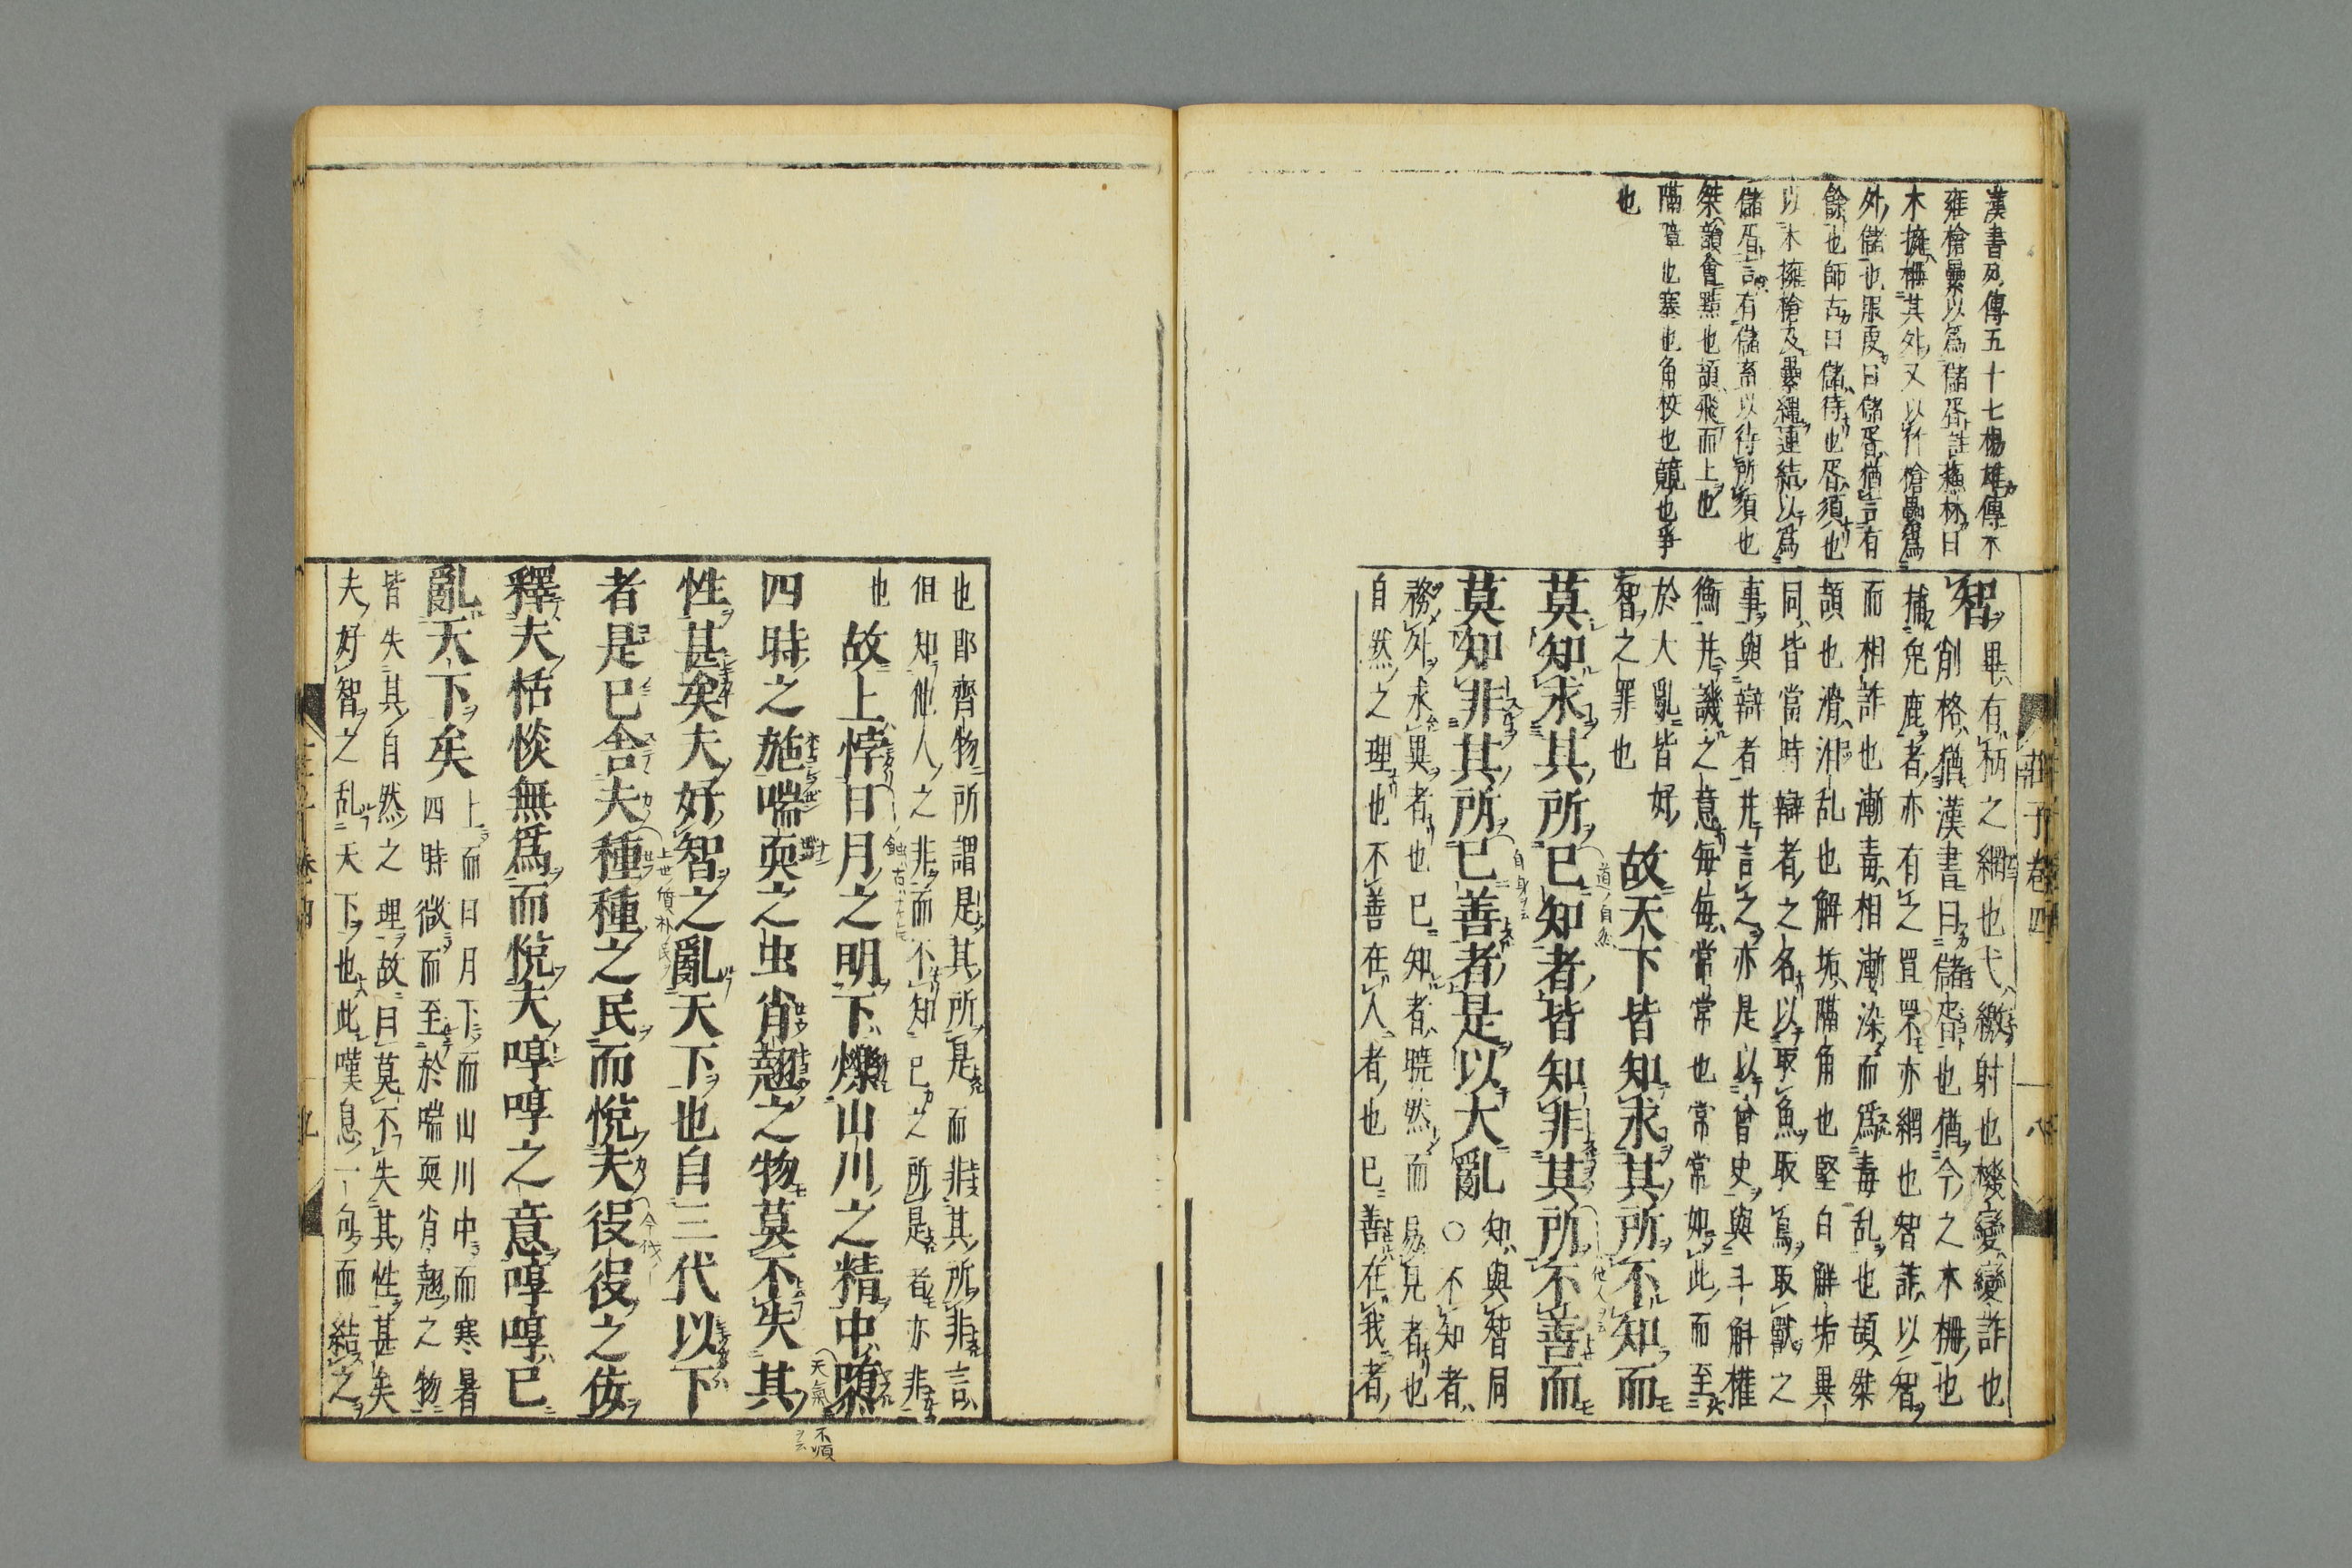 漢書列傳五十七楊雄傳木
雍槍纍以爲儲胥註蘓林曰
木擁柵其外又以竹槍纍爲
外儲也服虔曰儲胥猶言有
餘也師古曰儲待也胥須也
以木擁槍及纍繩連結以爲
儲胥言有儲畜以待所須也
桀頡會黠也頡飛而上也
隔礙也塞也角校也競也爭
也
智畢有柄之網也弋繳射也機變變詐也
削格猶漢書曰儲胥也猶今之木柵也
捕兔鹿者亦有之罝罘亦網也智詐以智
而相詐也漸毒相漸染而爲毒乱也頡桀
頡也滑汨乱也解垢隔角也堅白解垢異
同皆當時辯者之名以取魚取鳥取獸之
事與辯者並言之亦是以曾史與斗斛權
衡並譏之意每每常常也常常如此而至
於大亂皆好
智之罪也
故天下皆知求其所不知而
莫知求其所已知者皆知非其所不善而
莫知非其所已善者是以大亂
知與智同
○不知者
務外求異者也已知者曉然而易見者也
自然之理也不善在人者也已善在我者
莊子卷四
十八
也耶齊物所謂是其所是而非其所非言
但知他人之非而不知已之所是者亦非
也
故上悖日月之明下爍山川之精中墮
四時之施喘耎之虫肖翹之物莫不失其
性甚矣夫好智之亂天下也自三代以下
者是已舍夫種種之民而悅夫役役之佞
釋夫恬惔無爲而悅夫啍啍之意啍啍已
亂天下矣
上而日月下而山川中而寒暑
四時微而至於喘耎肖翹之物
皆失其自然之理故曰莫不失其性甚矣
夫好智之乱天下也此嘆息一句而結之